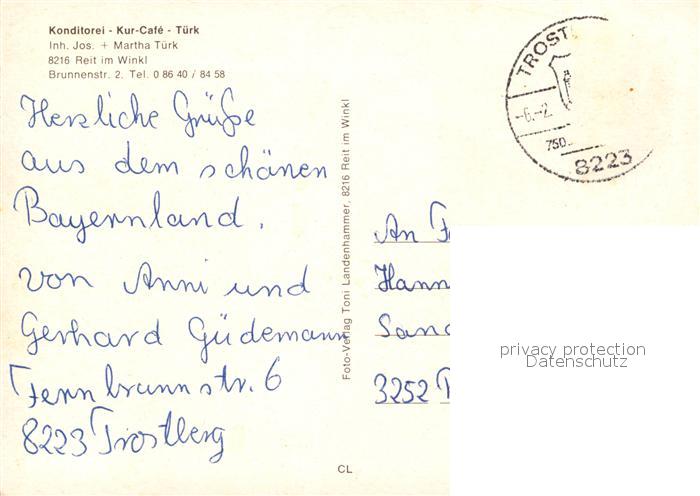 Konditorei - Kur-Café - Türk
Inh. Jos. + Martha Türk
8216 Reit im Winkl
Brunnenstr. 2. Tel. 0 86 40 / 84 58
Herzliche Grüße
aus dem schönen
Bayernland.
von Anni und
Gerhard Güdemann
8223 Trostberg
Foto-Verlag Toni Landenhammer, 8216 Reit im Winkl
CL
TROST
-6.-2.
750
8223
An
Hann
Sand
3252
privacy protection
Datenschutz